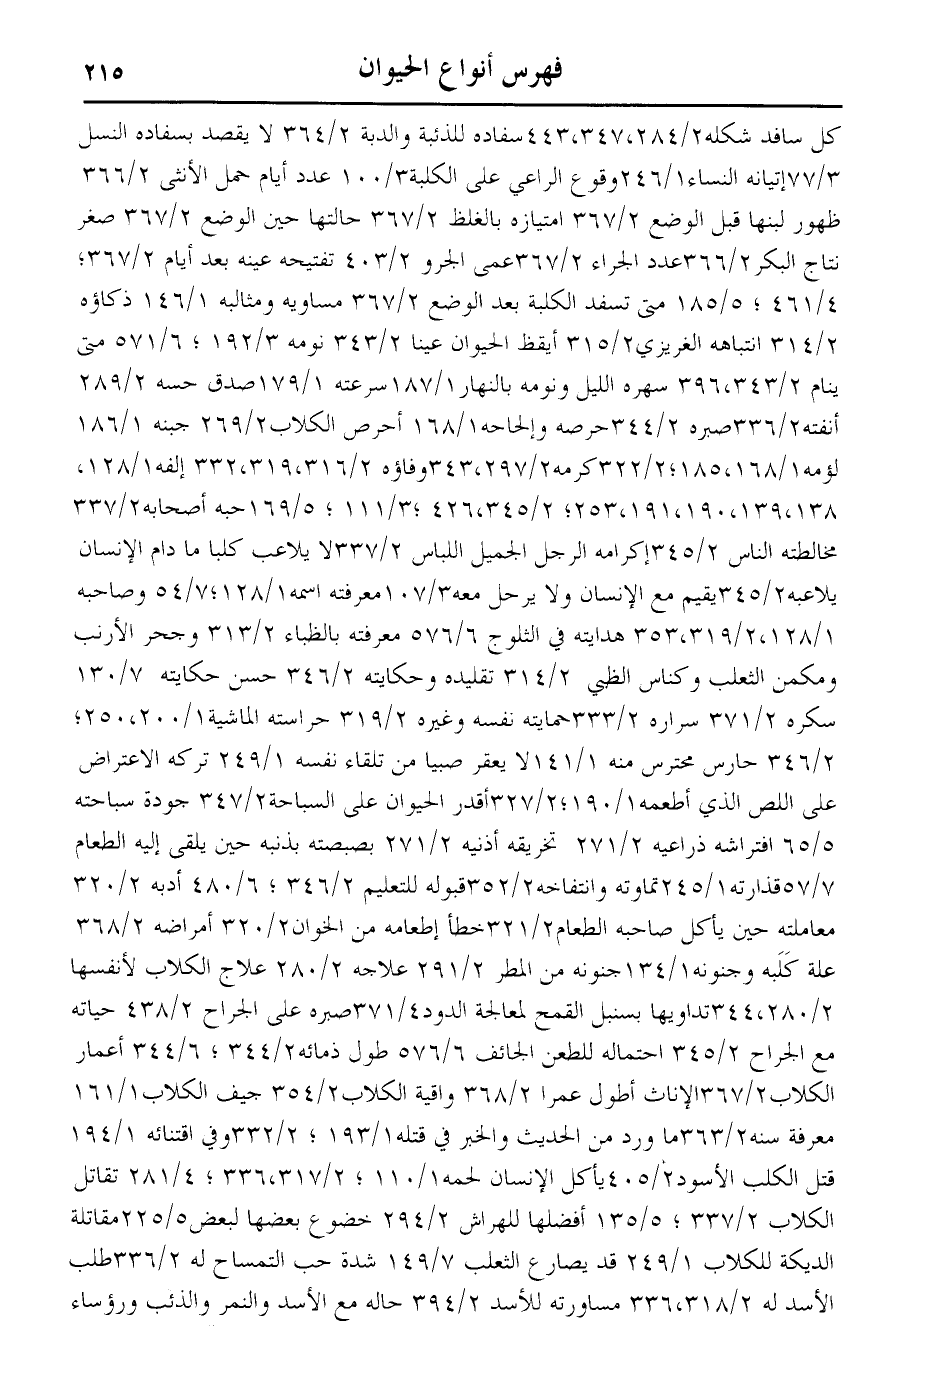 فهرس أنواع الحيوان ٢١٥
كل سافد شكله٢٨٤/٢،٤٤٣،٣٤٧سفاده للذئبة والدبة ٣٦٤/٢ لا يقصد بسفاده النسل
٧٧/٣إتيانه النساء٢٤٦/١وقوع الراعي على الكلبة١٠٠/٣ عدد أيام حمل الأنثى ٣٦٦/٢
ظهور لبنها قبل الوضع ٣٦٧/٢ امتيازه بالغلظ ٣٦٧/٢ حالتها حين الوضع ٣٦٧/٢ صغر
نتاج البكر٣٦٦/٢عدد الجراء ٣٦٧/٢عمى الجرو ٤٠٣/٢ تفتيحه عينه بعد أيام ٣٦٧/٢؛
٤٦١/٤ ؛ ١٨٥/٥ متى تسفد الكلبة بعد الوضع ٣٦٧/٢ مساويه ومثالبه ١٤٦/١ ذكاؤه
٣١٤/٢ انتباهه الغريزي٣١٥/٢ أيقظ الحيوان عينا ٣٤٣/٢ نومه ١٩٢/٣ ؛ ٥٧١/٦ متى
ينام ٣٩٦،٣٤٣/٢ سهره الليل ونومه بالنهار١٨٧/١سرعته ١٧٩/١صدق حسه ٢٨٩/٢
أنفته٣٣٦/٢صبره ٣٤٤/٢حرصه وإلحاحه١٦٨/١ أحرص الكلاب٢٦٩/٢ جبنه ١٨٦/١
لؤمه١٨٥،١٦٨/١؛٣٢٢/٢كرمه٣٤٣،٢٩٧/٢وفاؤه ٣٣٢،٣١٩،٣١٦/٢ إلفه١٢٨/١،
٢٥٣،١٩١،١٩٠،١٣٩،١٣٨؛ ٤٢٦،٣٤٥/٢ ؛١١١/٣ ؛ ١٦٩/٥حبه أصحابه٣٣٧/٢
مخالطته الناس ٣٤٥/٢إكرامه الرجل الجميل اللباس ٣٣٧/٢لا يلاعب كلبا ما دام الإنسان
يلاعبه٣٤٥/٢يقيم مع الإنسان ولا يرحل معه١٠٧/٣معرفته اسمه١٢٨/١؛٥٤/٧ وصاحبه
١٢٨/١،٣٥٣،٣١٩/٢ هدايته في الثلوج ٥٧٦/٦ معرفته بالظباء ٣١٣/٢ وجحر الأرنب
ومكمن الثعلب وكناس الظبي ٣١٤/٢ تقليده وحكايته ٣٤٦/٢ حسن حكايته ١٣٠/٧
سكره ٣٧١/٢ سراره ٣٣٣/٢حمايته نفسه وغيره ٣١٩/٢ حراسته الماشية٢٥٠،٢٠٠/١؛
٣٤٦/٢ حارس محترس منه ١٤١/١لا يعقر صبيا من تلقاء نفسه ٢٤٩/١ تركه الاعتراض
على اللص الذي أطعمه١٩٠/١؛٣٢٧/٢أقدر الحيوان على السباحة٣٤٧/٢ جودة سباحته
٦٥/٥ افتراشه ذراعيه ٢٧١/٢ تخريقه أذنيه ٢٧١/٢ بصبصته بذنبه حين يلقى إليه الطعام
٥٧/٧قذارته٢٤٥/١تماوته وانتفاخه٣٥٢/٢قبوله للتعليم ٣٤٦/٢ ؛ ٤٨٠/٦ أدبه ٣٢٠/٢
معاملته حين يأكل صاحبه الطعام٣٢١/٢خطأ إطعامه من الخوان٣٢٠/٢ أمراضه ٣٦٨/٢
علة كَلَبه وجنونه١٣٤/١جنونه من المطر ٢٩١/٢ علاجه ٢٨٠/٢ علاج الكلاب لأنفسها
٣٤٤،٢٨٠/٢تداويها بسنبل القمح لمعالجة الدود٣٧١/٤صبره على الجراح ٤٣٨/٢ حياته
مع الجراح ٣٤٥/٢ احتماله للطعن الجائف ٥٧٦/٦ طول ذمائه٣٤٤/٢ ؛ ٣٤٤/٦ أعمار
الكلاب٣٦٧/٢الإناث أطول عمرا ٣٦٨/٢ واقية الكلاب٣٥٤/٢ جيف الكلاب١٦١/١
معرفة سنه٣٦٣/٢ما ورد من الحديث والخبر في قتله١٩٣/١ ؛ ٣٣٢/٢وفي اقتنائه ١٩٤/١
قتل الكلب الأسود٤٠٥/٢يأكل الإنسان لحمه١١٠/١ ؛ ٣٣٦،٣١٧/٢ ؛ ٢٨١/٤ تقاتل
الكلاب ٣٣٧/٢ ؛ ١٣٥/٥ أفضلها للهراش ٢٩٤/٢ خضوع بعضها لبعض٢٢٥/٥مقاتلة
الديكة للكلاب ٢٤٩/١ قد يصارع الثعلب ١٤٩/٧ شدة حب التمساح له ٣٣٦/٢طلب
الأسد له ٣٣٦،٣١٨/٢ مساورته للأسد ٣٩٤/٢ حاله مع الأسد والنمر والذئب ورؤساء